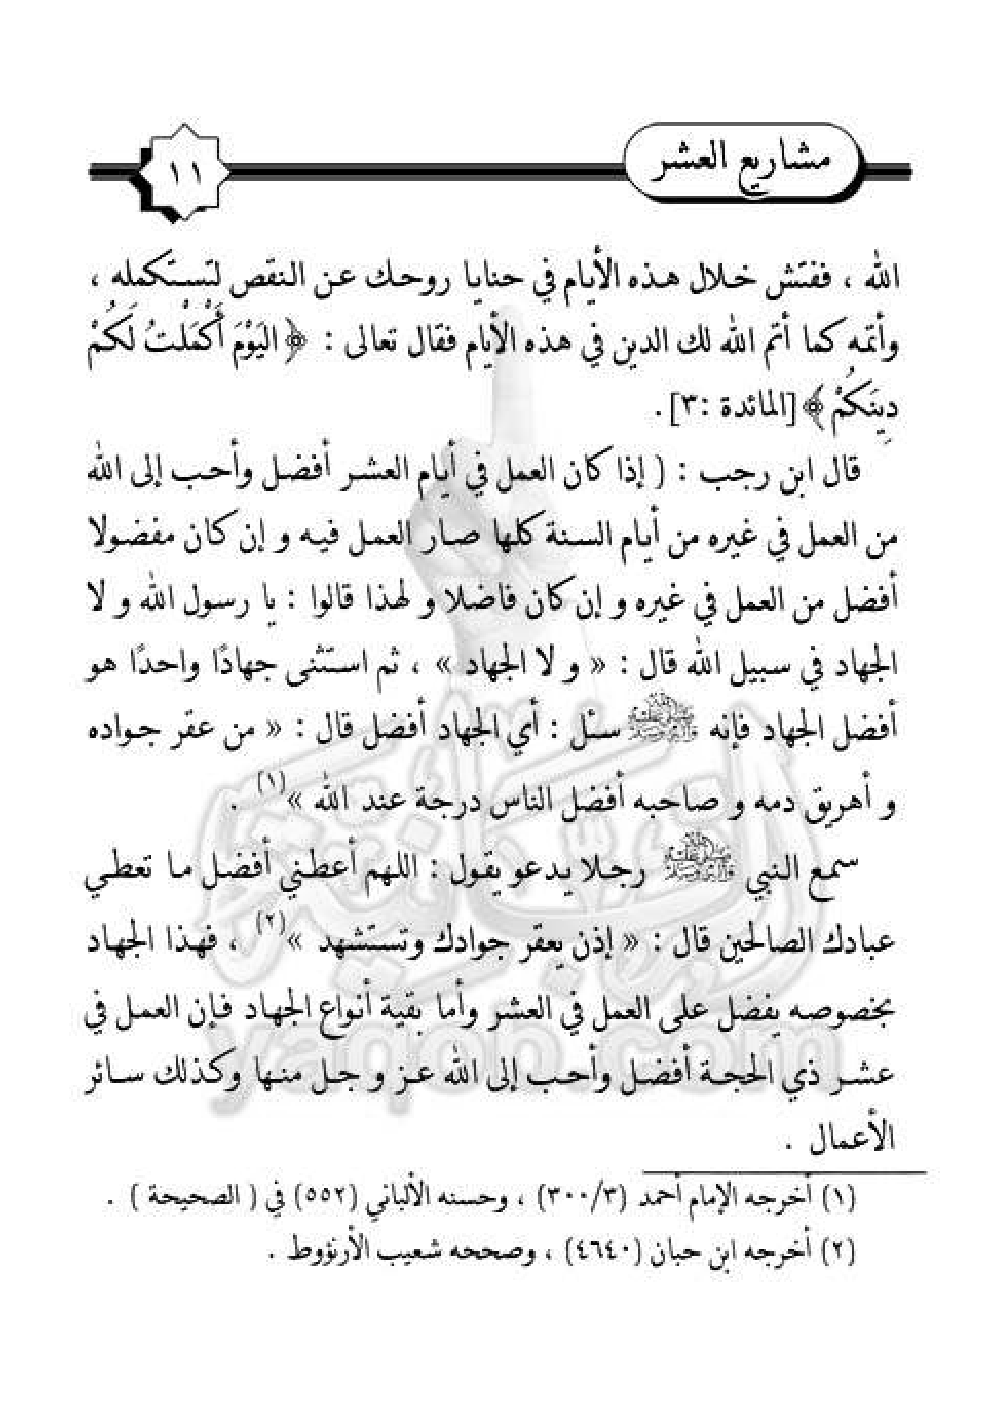 مشاريع العشر
١١
الله ، ففتش خلال هذه الأيام في حنايا روحك عن النقص لتستكمله ،
وأتمه كما أتم الله لك الدين في هذه الأيام فقال تعالى : ﴿ اليَوْمَ أَكْمَلْتُ لَكُمْ
دِينَكُمْ ﴾ [المائدة :٣] .
قال ابن رجب : ( إذا كان العمل في أيام العشر أفضل وأحب إلى الله
من العمل في غيره من أيام السنة كلها صار العمل فيه و إن كان مفضولا
أفضل من العمل في غيره و إن كان فاضلا و لهذا قالوا : يا رسول الله و لا
الجهاد في سبيل الله قال : « و لا الجهاد » ، ثم استثنى جهادًا واحدًا هو
أفضل الجهاد فإنه ﷺ سئل : أي الجهاد أفضل قال : « من عقر جواده
و أهريق دمه و صاحبه أفضل الناس درجة عند الله »(١) .
سمع النبي ﷺ رجلا يدعو يقول : اللهم أعطني أفضل ما تعطي
عبادك الصالحين قال : « إذن يعقر جوادك وتستشهد »(٢) ، فهذا الجهاد
بخصوصه يفضل على العمل في العشر وأما بقية أنواع الجهاد فإن العمل في
عشر ذي الحجة أفضل وأحب إلى الله عز و جل منها وكذلك سائر
الأعمال .
(١) أخرجه الإمام أحمد (٣٠٠/٣) ، وحسنه الألباني (٥٥٢) في ( الصحيحة ) .
(٢) أخرجه ابن حبان (٤٦٤٠) ، وصححه شعيب الأرنؤوط .
yaqob.com